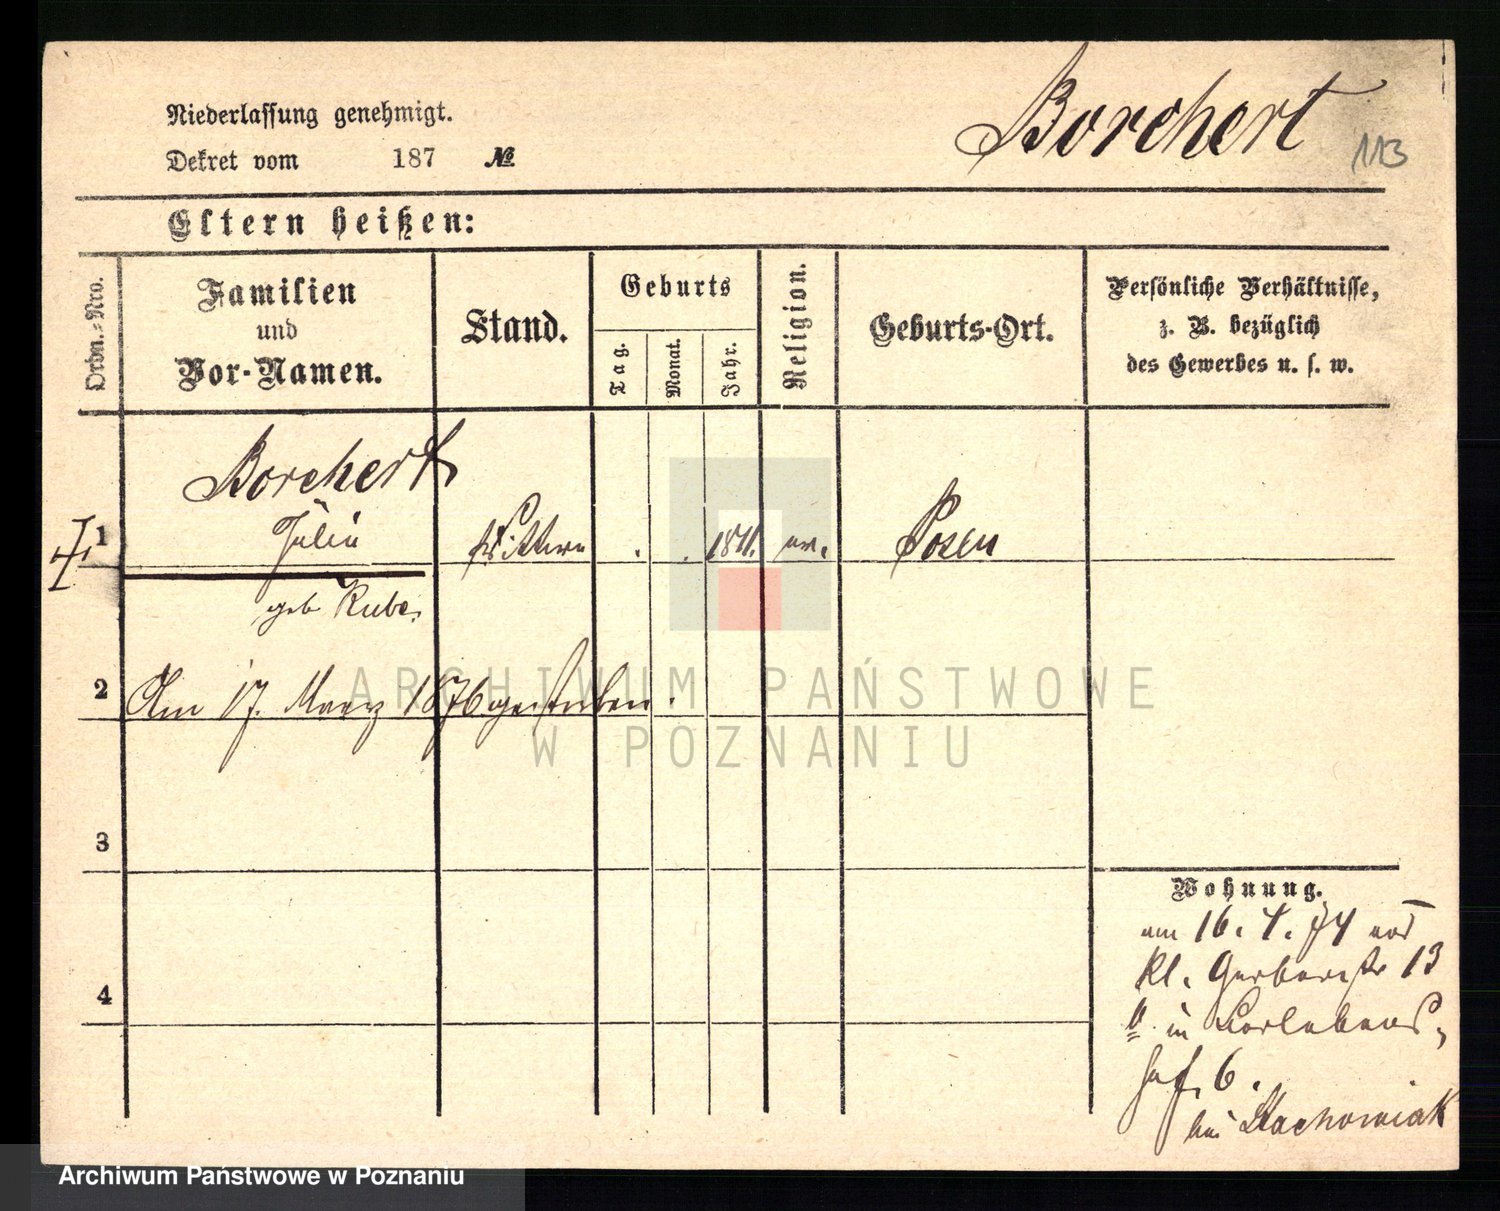 Niederlassung genehmigt.
Dekret vom 187 №
Borchert
113
Eltern heißen:
Ordn.=Nro.
Familien
und
Vor-Namen.
Stand.
Geburts
Tag.
Monat.
Jahr.
Religion.
Geburts-Ort.
Persönliche Verhältnisse,
z. B. bezüglich
des Gewerbes u. s. w.
Borchert
1 Julie Posen
geb Kube,
2 Am 17. Maerz 1876 gestorben.
3
4
Wohnung.
am 16. 4. 74 von
kl. Gerberstr 13
in
hof. 6.
bei Stachowiak
ARCHIWUM PAŃSTWOWE
W POZNANIU
Archiwum Państwowe w Poznaniu